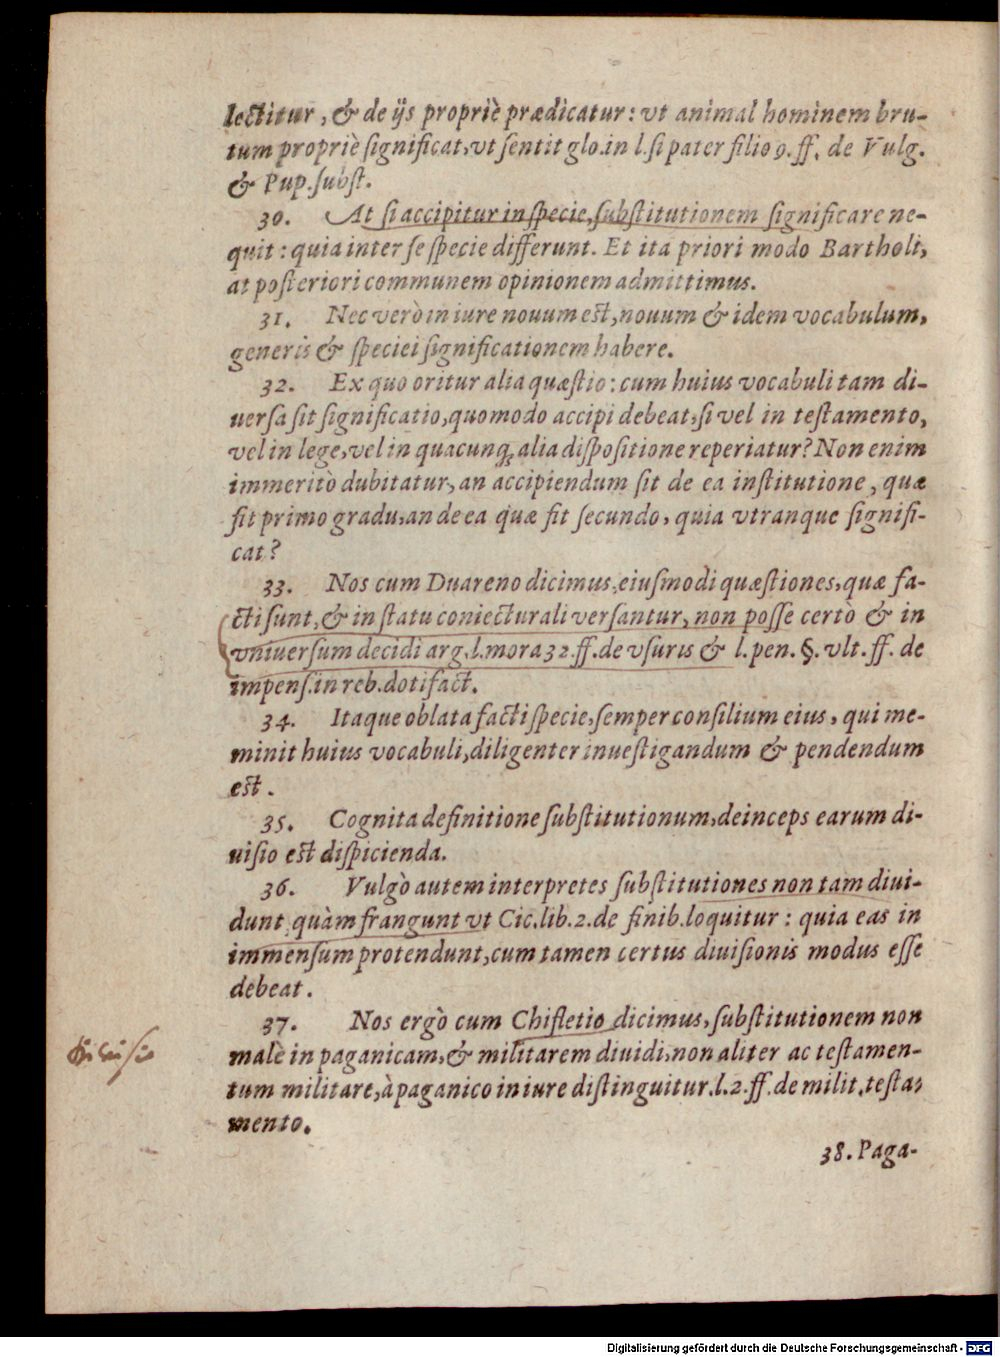 lectitur, & de ijs propriè prædicatur: vt animal hominem bru-
tum propriè significat, vt sentit glo. in l. si pater filio 9. ff. de Vulg.
& Pup. subst.
30. At si accipitur in specie, substitutionem significare ne-
quit: quia inter se specie differunt. Et ita priori modo Bartholi,
at posteriori communem opinionem admittimus.
31. Nec verò in iure nouum est, nouum & idem vocabulum,
generis & speciei significationem habere.
32. Ex quo oritur alia quæstio: cum huius vocabuli tam di-
uersa sit significatio, quomodo accipi debeat, si vel in testamento,
vel in lege, vel in quacunq; alia dispositione reperiatur? Non enim
immeritò dubitatur, an accipiendum sit de ea institutione, quæ
fit primo gradu, an de ea quæ fit secundo, quia vtranque signifi-
cat?
33. Nos cum Duareno dicimus, eiusmodi quæstiones, quæ fa-
cti sunt, & in statu coniecturali versantur, non posse certò & in
vniuersum decidi arg. l. mora 32. ff. de vsuris & l. pen. §. vlt. ff. de
impens. in reb. doti fact.
34. Itaque oblata facti specie, semper consilium eius, qui me-
minit huius vocabuli, diligenter inuestigandum & pendendum
est.
35. Cognita definitione substitutionum, deinceps earum di-
uisio est dispicienda.
36. Vulgò autem interpretes substitutiones non tam diui-
dunt quàm frangunt vt Cic. lib. 2. de finib. loquitur: quia eas in
immensum protendunt, cum tamen certus diuisionis modus esse
debeat.
37. Nos ergò cum Chifletio dicimus, substitutionem non
malè in paganicam, & militarem diuidi, non aliter ac testamen-
tum militare, à paganico in iure distinguitur. l. 2. ff. de milit. testa-
mento.
Diuisio
38. Paga-
Digitalisierung gefördert durch die Deutsche Forschungsgemeinschaft - DFG